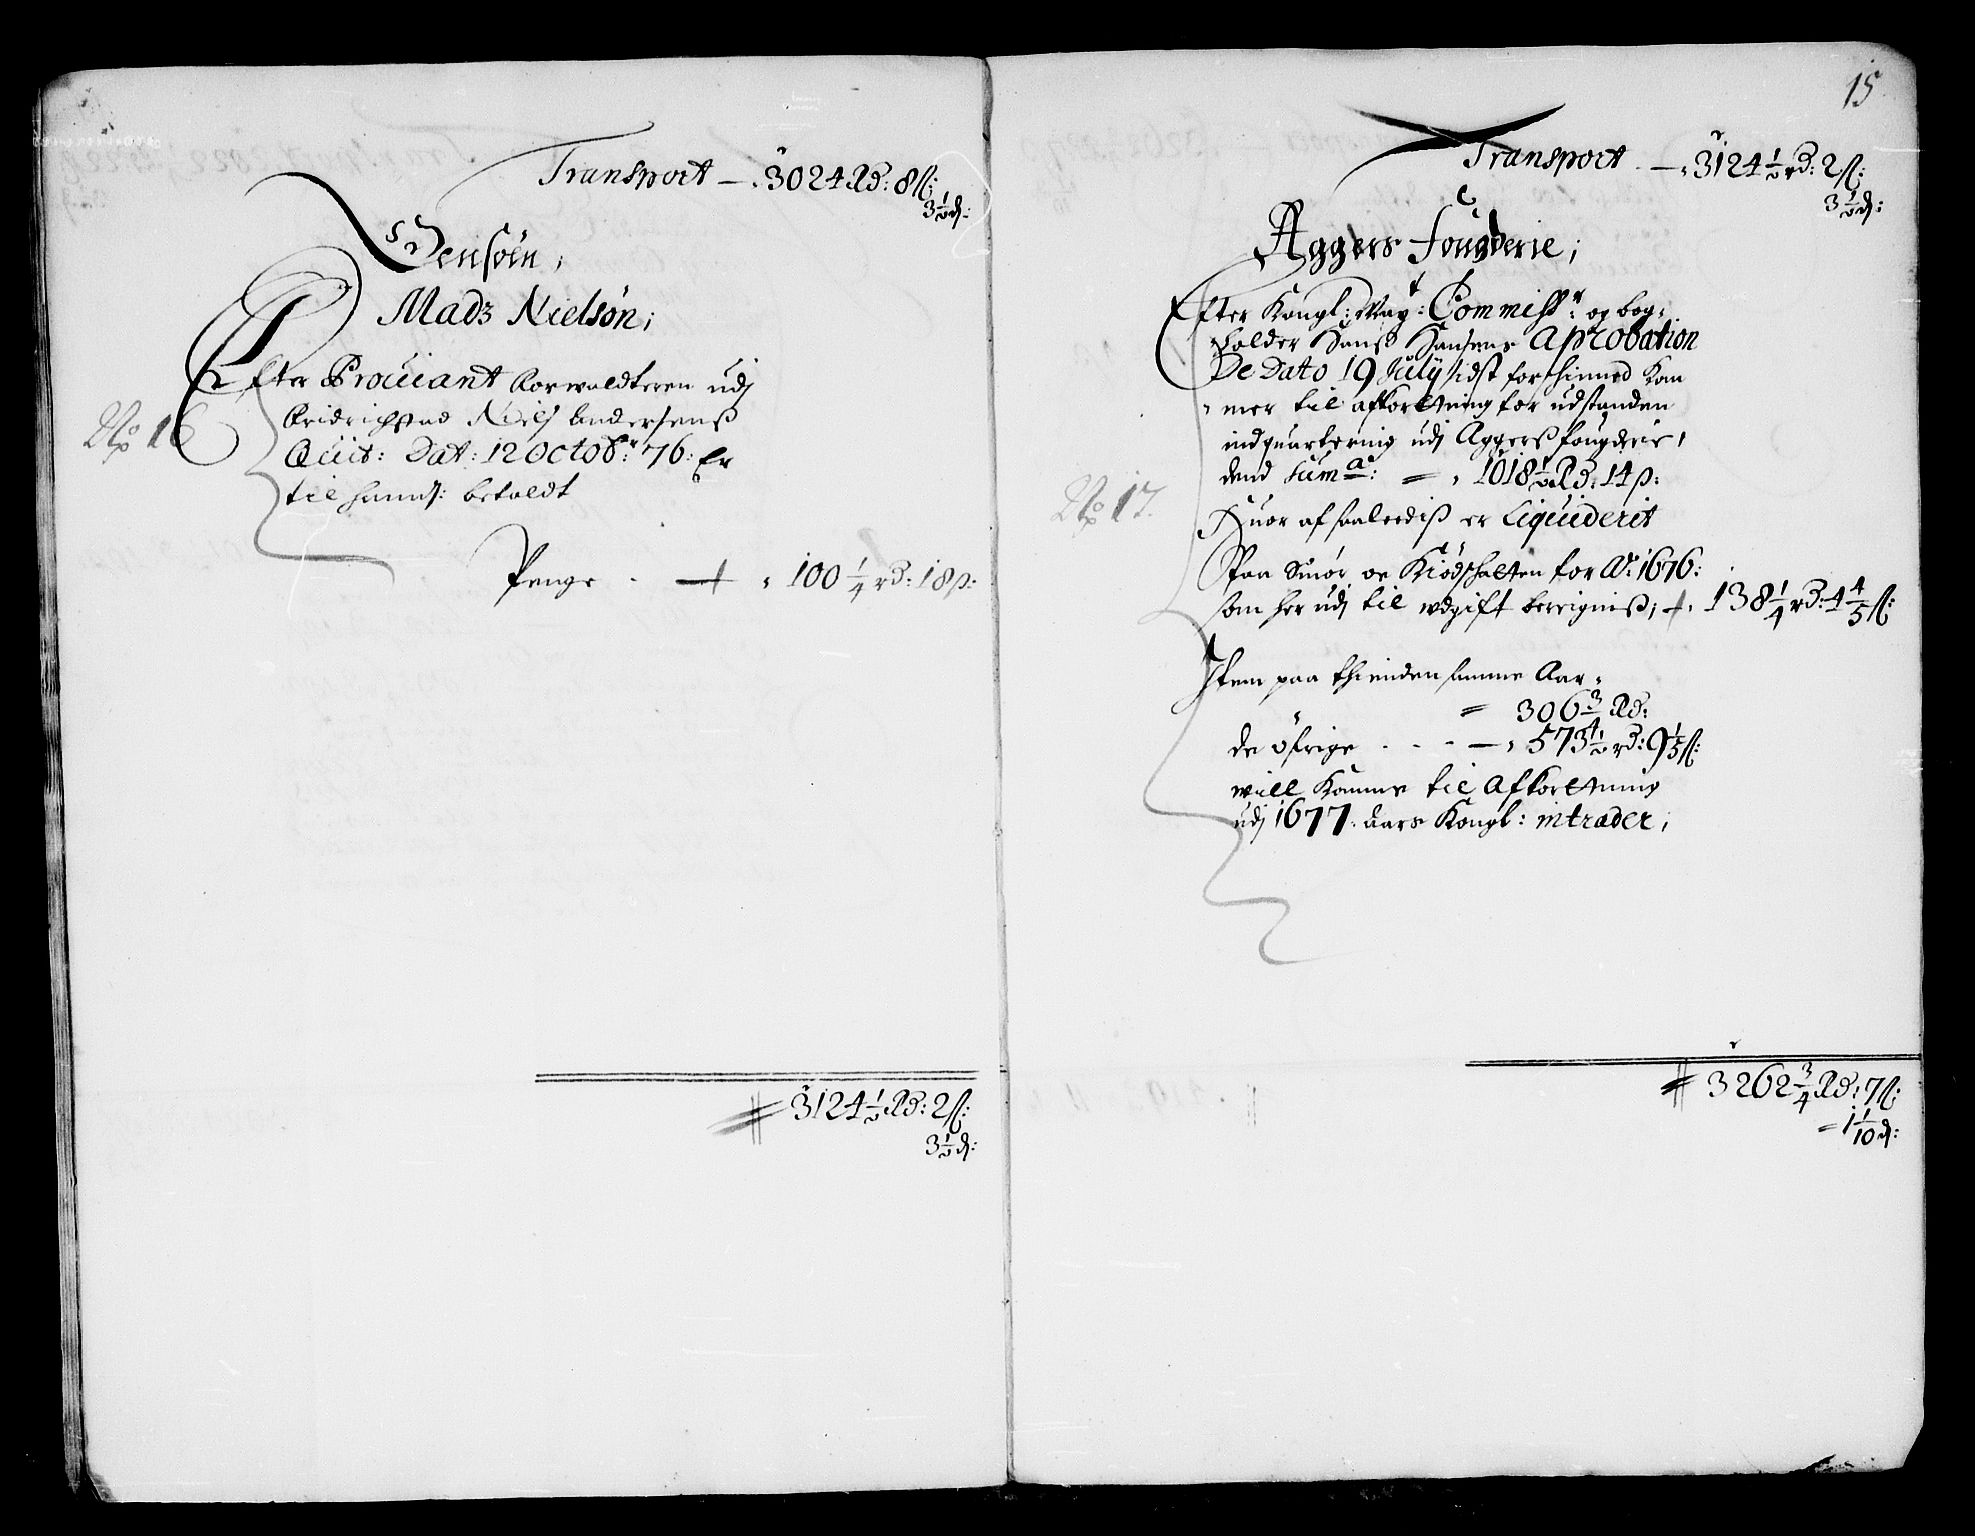 Transport — 3024 Rd: 8 ß:
3½ d:
Sensöen;
Mads Nielsön;
No 16
Efter Prouiant Forwaldteren udj
Fridrichstad Niels Andersens
Quit: Dat: 12 Octobr: 76: Er
til hannd: betaldt
Penge . — 100 1/4 rd: 18 ß:
3124½ Rd: 2 ß:
3½ d:
15
Transport . — 3124½ rd: 2 ß:
3½ d:
Aggers fougderie;
Efter Kongl: May: Commissr: og bog-
holder Hans Hansens Aprobation
De Dato 19 July sidst forschinned Kom
mer til afkortning for udstanden
indquartering udj Aggerss fougderie,
No 17.
dend Suma: = 1018½ Rd: 14 ß:
Huor af saaledis er Liquiderit
Paa Smör oc Kiödschatten for Ao: 1676:
som her udj til udgift beregniss; 138 1/4 rd: 4 4/5 ß:
Item paa thienden samme Aar.
= 306 3/4 Rd:
de öfrige . . . — 573½ rd: 9 1/5 ß:
will Komme til Afkortning
udj 1677. Aars Kongl: intrader;
3262 3/4 Rd: 7 ß:
= 1 1/10 d: